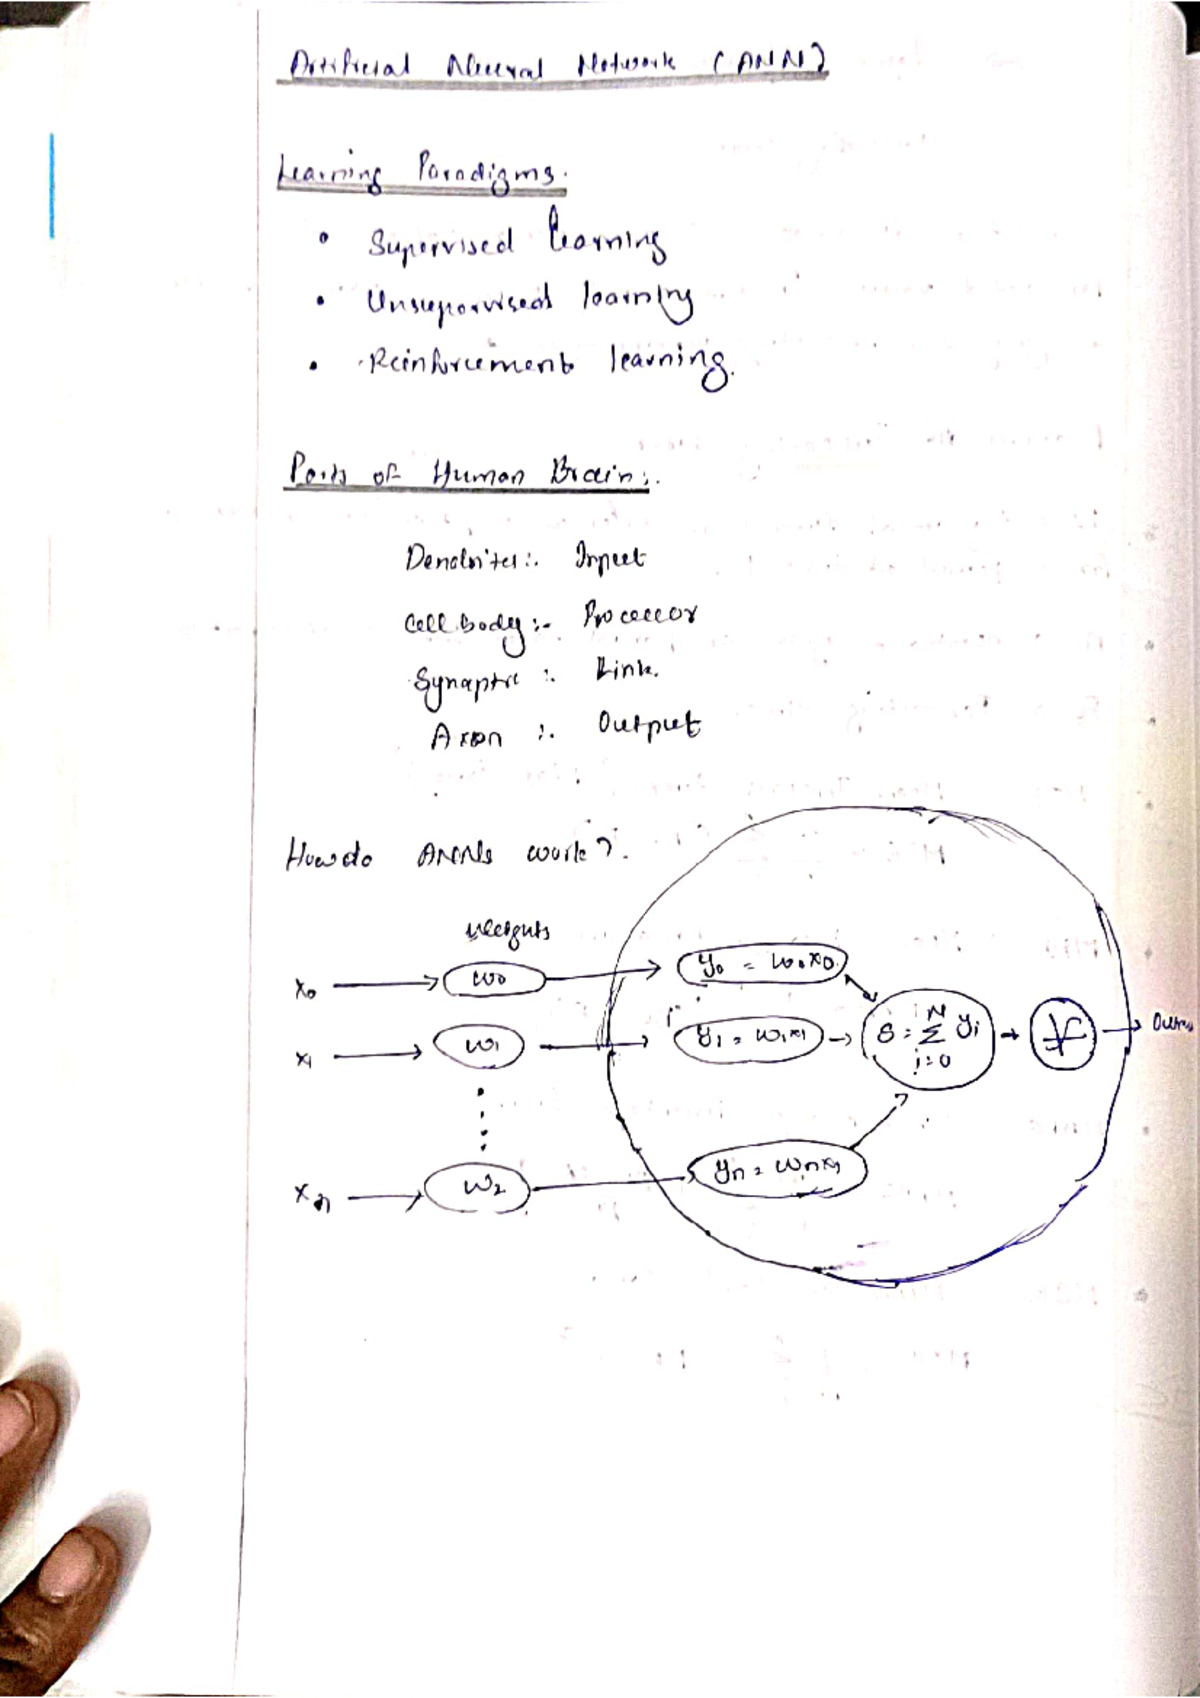 Artificial Neural Network (ANN)
Learning Paradigms.
• Supervised learning
• Unsupervised learning
• Reinforcement learning.
Parts of Human Brain:.
Dendrites:. Input
Cell body:- Processor
Synaptic :. Link.
Axon :. Output
How do ANNs work?.
weights
x0 w0 y0 = w0x0
x1 w1 y1 = w1x1 S = N∑i=0 yi Outpu
xn w2 yn = wnxn